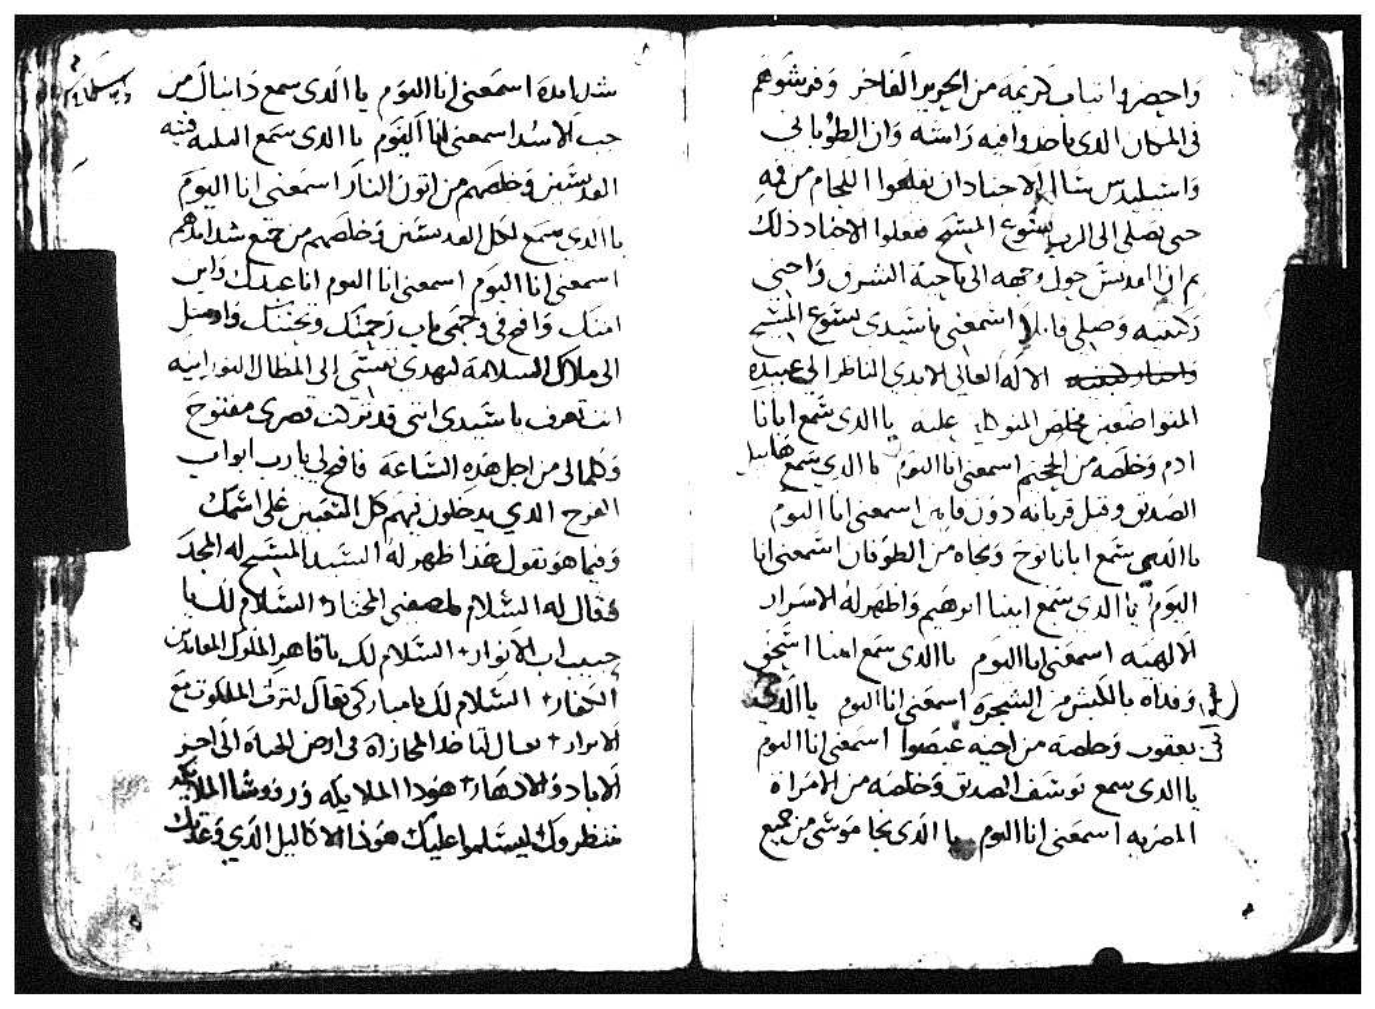 واحضروا ثياب كريمه من الحرير الفاخر وفرشوهم
فى المكان الدى ياخدوا فيه راسه وان الطوبانى
واسيليدس سال الاجناد ان يقلعوا اللجام من فمه
حتى يصلى الى الرب يسوع المسيح ففعلوا الاجناد ذلك
ثم ان القديس حول وجهه الى ناحية الشرق واحنى
ركبتيه وصلى قايلا اسمعنى يا سيدى يسوع المسيح
الاله العالى الابدى الناظر الى عبيده
المتواضعين مخلص المتوكلين عليه يا الدى سمع ابانا
ادم وخلصه من الجحيم اسمعنى انا اليوم يا الدي سمع هابيل
الصديق وقبل قربانه دون قايين اسمعنى انا اليوم
يا الدى سمع ابانا نوح ونجاه من الطوفان اسمعنى انا
اليوم يا الدى سمع ابينا ابرهيم واظهر له الاسرار
الالهيه اسمعنى انا اليوم يا الدى سمع ابينا اسحق
وفداه بالكبش من الشجره اسمعنى انا اليوم يا الدي
يعقوب وخلصه من اخيه عيصوا اسمعنى انا اليوم
يا الدى سمع يوسف الصديق وخلصه من الامراه
المصريه اسمعنى انا اليوم يا الدى نجا موسى من جميع
شدايده اسمعنى انا اليوم يا الدى سمع دانيال من
جب الاسد اسمعنى انا اليوم يا الدى سمع الثلثه فتيه
القديسين وخلصهم من اتون النار اسمعنى انا اليوم
يا الدي سمع لكل القديسين وخلصهم من جميع شدايدهم
اسمعنى انا اليوم اسمعنى انا اليوم انا عبدك وابن
امتك وافتح فى وجهى باب رحمتك وتحننك وارسل
الى ملاك السلامة ليهدى نفسى الى المظال النورانيه
انت تعرف يا سيدى اننى قد تركت قصرى مفتوح
وكلمالى من اجل هذه الساعه فافتح لى يا رب ابواب
الفرح الدي يدخلون فيهم كل المتعبين على اسمك
وفيما هو يقول هذا ظهر له السيد المسيح له المجد
فقال له السلام لمصفى المختار السلام لك يا
حبيب اب الانوار السلام لك يا قاهر الملوك المعاندين
الكفار السلام لك يا مباركى تعال لترث الملكوت مع
الابرار تعال لتاخد المجازاة فى ارض الحياه الى اخر
الاباد والادهار هودا الملايكه وروسا الملايكه
ينتظروك ليسلموا عليك هودا الاكاليل الدي وعدتك